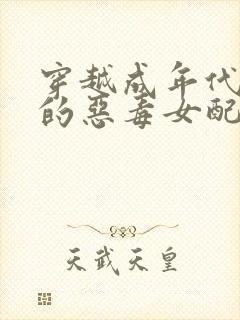 穿越成年代
的恶毒女配
天武天皇